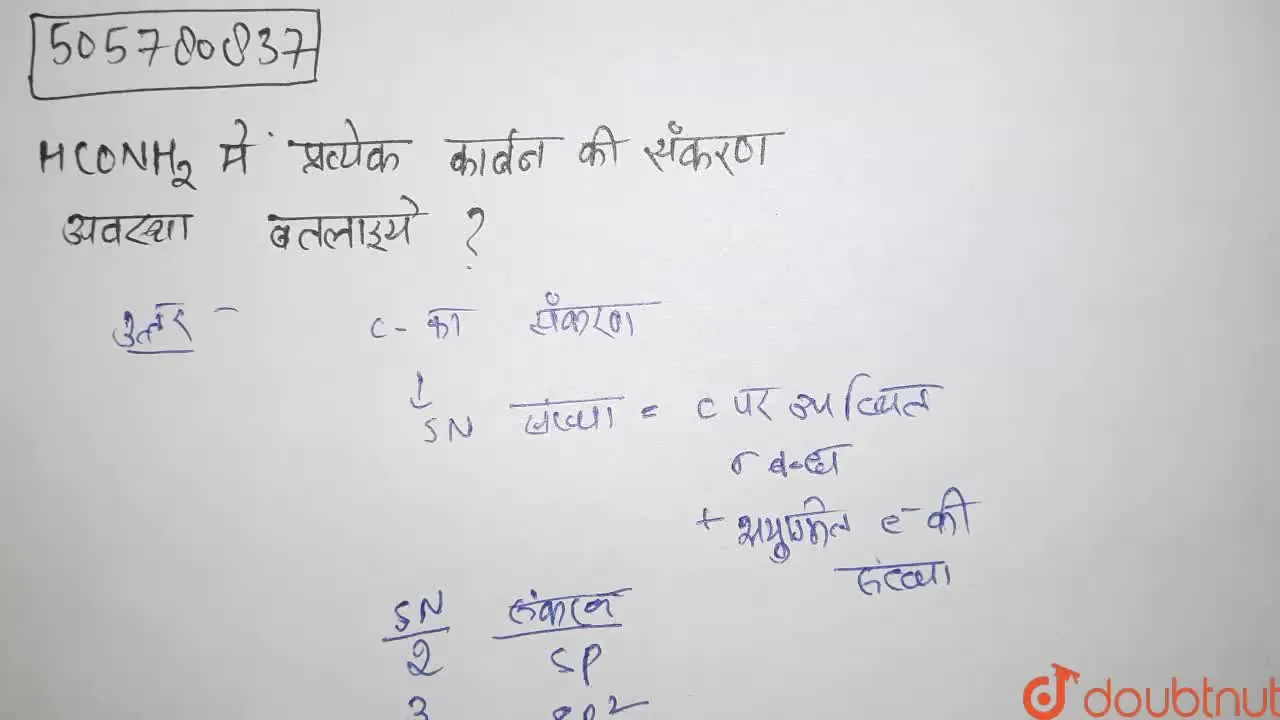 505780837
HCONH2 में प्रत्येक कार्बन की संकरण
अवस्था बतलाइये ?
उत्तर - C - का संकरण
↓
SN संख्या = C पर उपस्थित
σ बन्ध
+ अयुग्मित e- की
संख्या
SN संकरण
2 sp
3 sp2
doubtnut